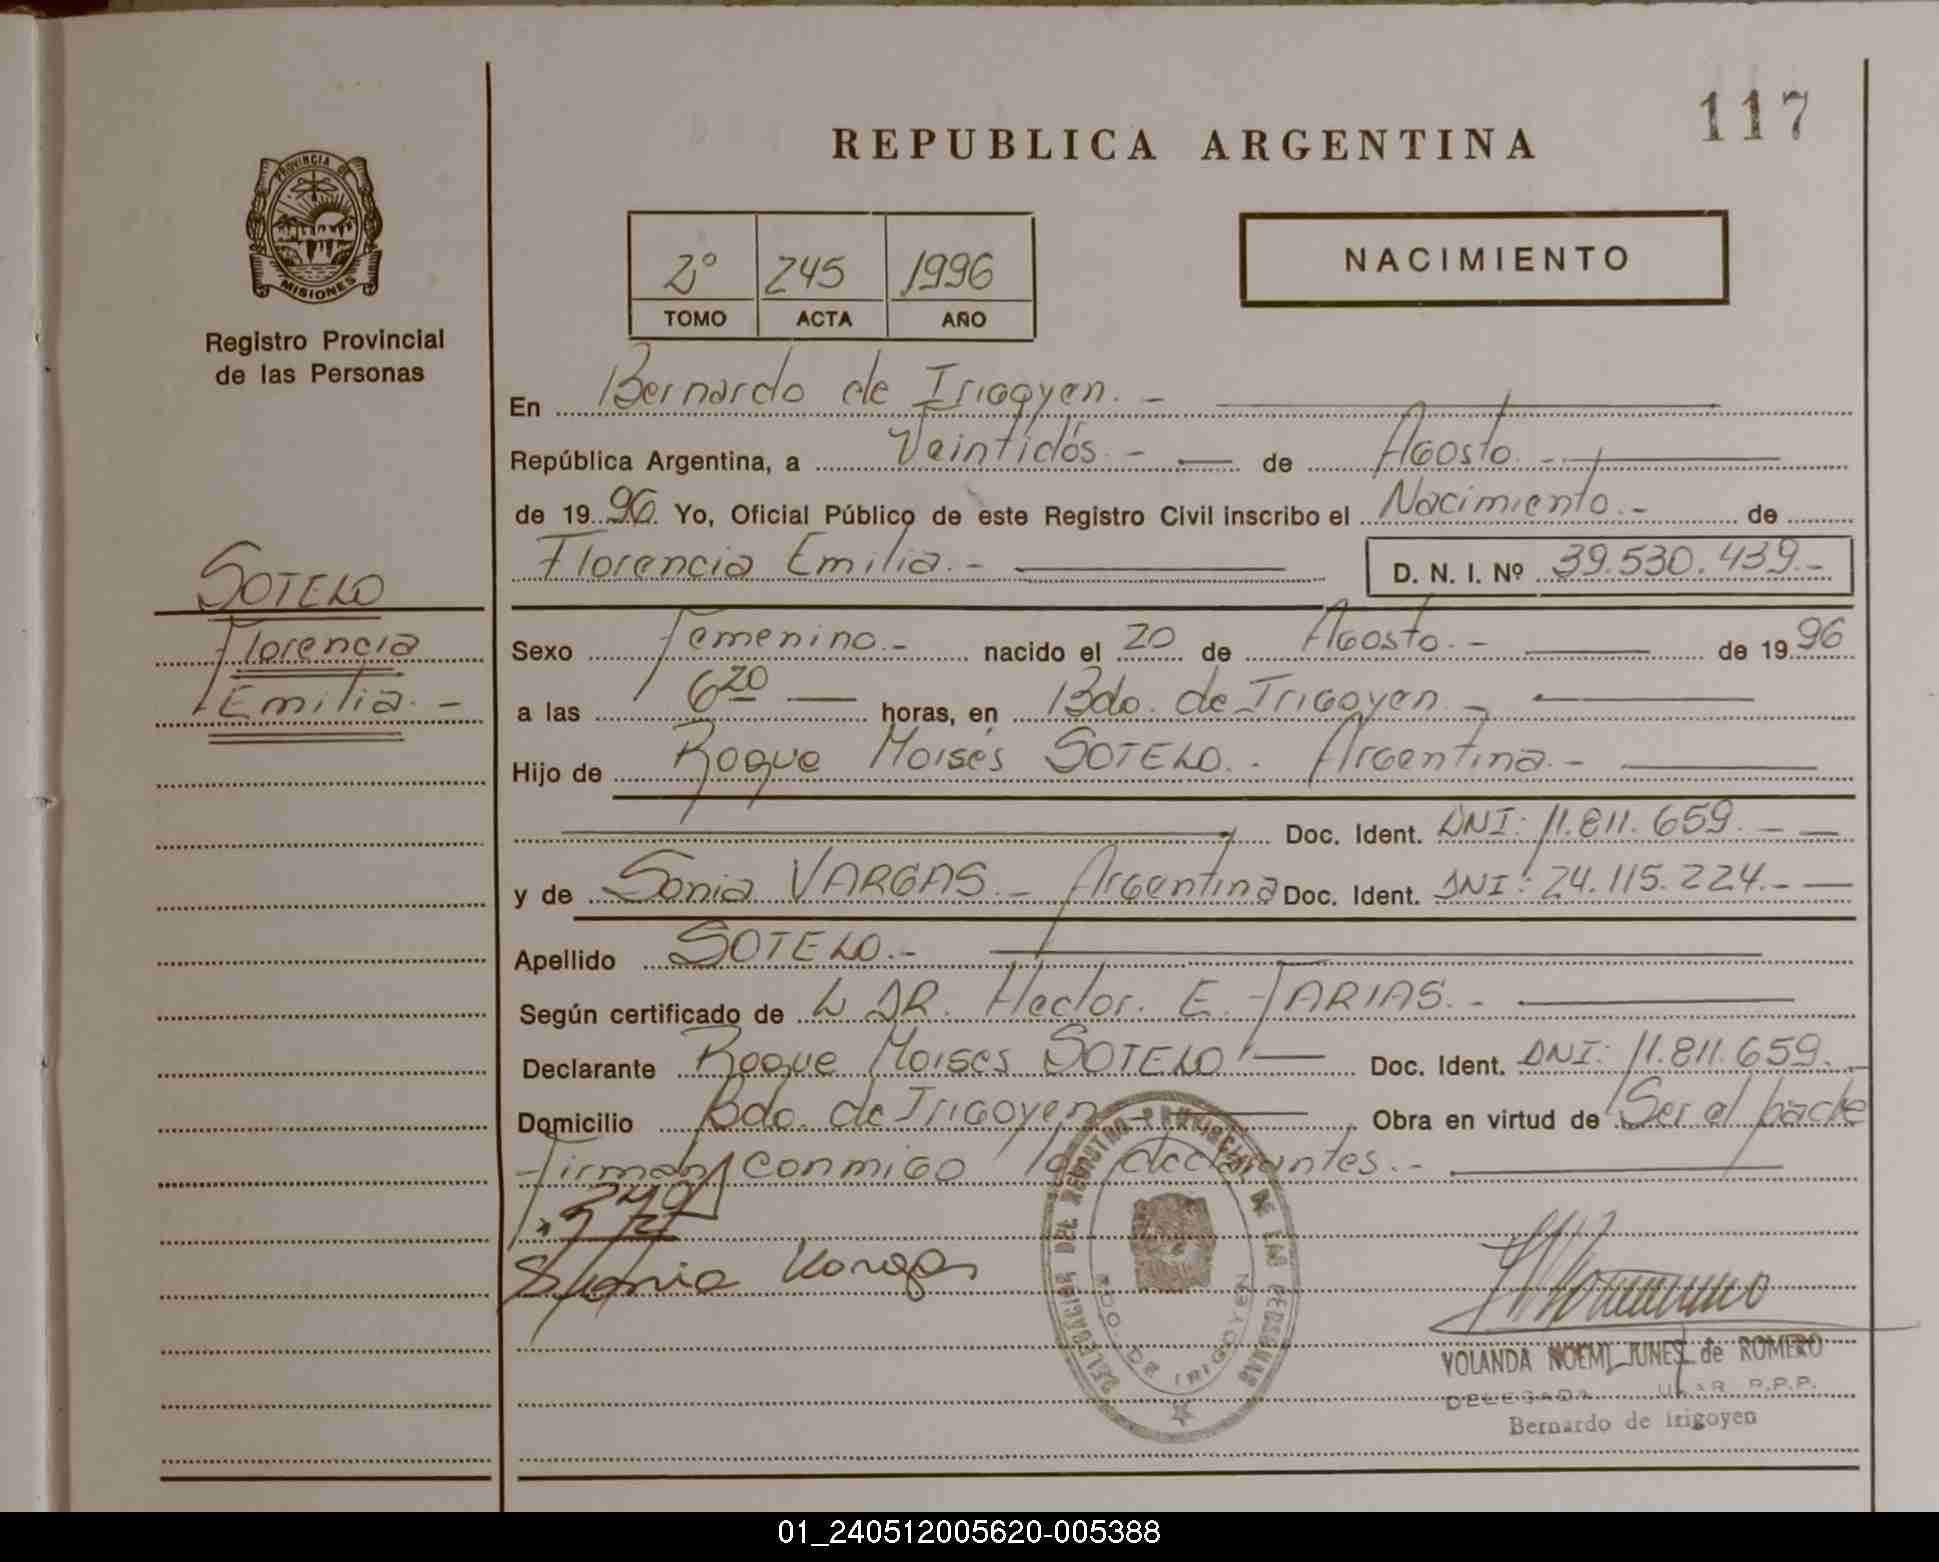 117
REPUBLICA ARGENTINA
PROVINCIA DE
MISIONES
Registro Provincial
de las Personas
2° 245 1996
TOMO ACTA AÑO
NACIMIENTO
En Bernardo de Irigoyen.-
República Argentina, a Veintidós.- de Agosto.-
de 1996. Yo, Oficial Público de este Registro Civil inscribo el Nacimiento.- de
Florencia Emilia.- D. N. I. Nº 39.530.439.-
SOTELO
Florencia
Emilia.-
Sexo Femenino.- nacido el 20 de Agosto.- de 1996
a las 6 20 horas, en Bdo. de Irigoyen.-
Hijo de Roque Moisés SOTELO.- Argentina.-
Doc. Ident. DNI: 11.811.659.-
y de Sonia VARGAS.- Argentina Doc. Ident. DNI: 24.115.224.-
Apellido SOTELO.-
Según certificado de L DR. Hector. E. FARIAS.-
Declarante Roque Moises SOTELO Doc. Ident. DNI: 11.811.659.-
Domicilio Bdo. de Irigoyen Obra en virtud de Ser el padre
Firman conmigo los declarantes.-
Sonia Vargas
DELEGACION DEL REGISTRO PROVINCIAL DE LAS PERSONAS
BDO. DE IRIGOYEN
YOLANDA NOEMI JUNES de ROMERO
DELEGADA R.P.P.
Bernardo de Irigoyen
01_240512005620-005388